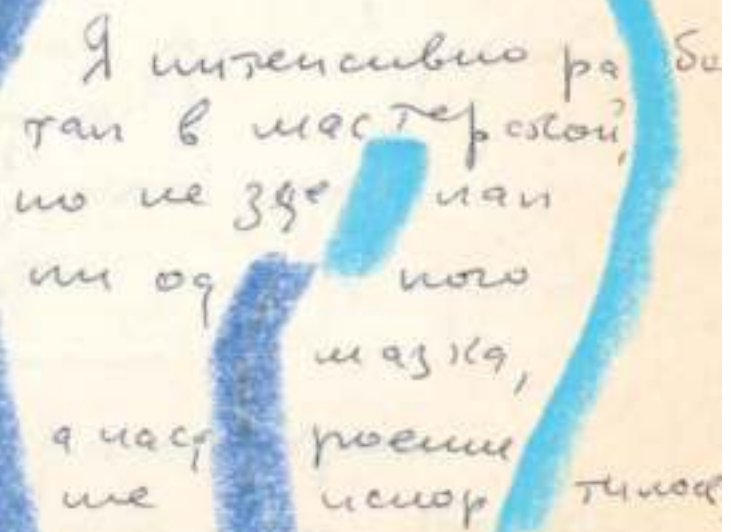 Я интенсивно рабо
тал в мастерской,
но не зделал
ни одного
мазка,
а настроение
не испортилось